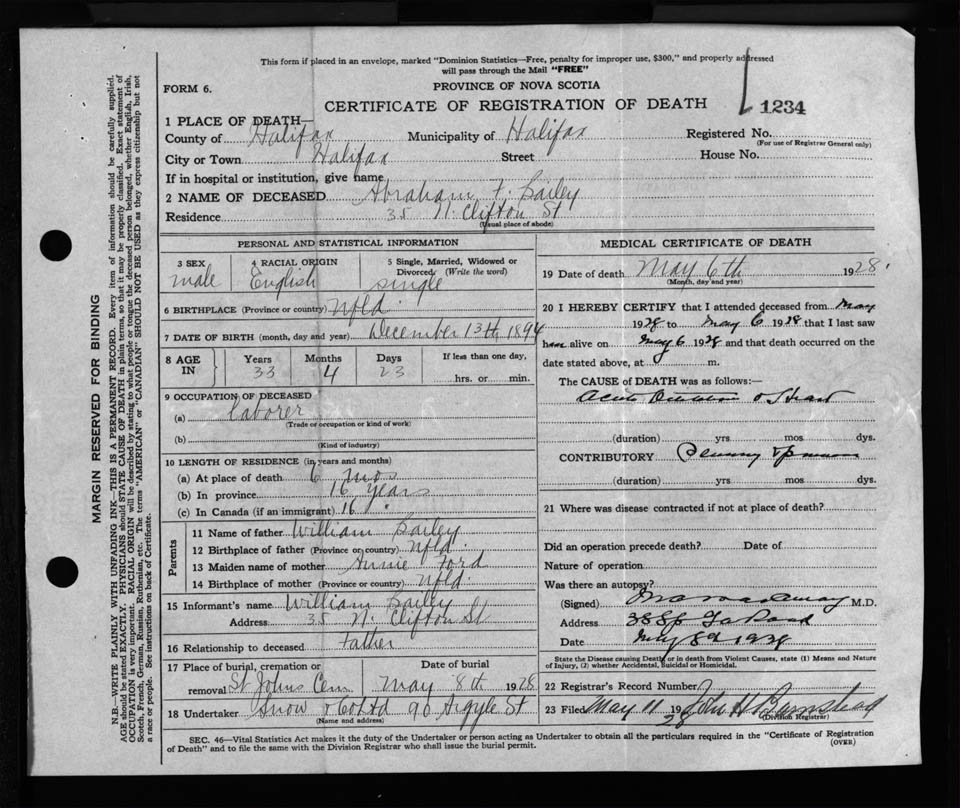 This form if placed in an envelope, marked "Dominion Statistics—Free, penalty for improper use, $300," and properly addressed
will pass through the Mail "FREE"
FORM 6.
PROVINCE OF NOVA SCOTIA
CERTIFICATE OF REGISTRATION OF DEATH
1234
1 PLACE OF DEATH—
County of Halifax Municipality of Halifax Registered No.
(For use of Registrar General only)
City or Town Halifax Street House No.
If in hospital or institution, give name
2 NAME OF DECEASED Abraham F. Bailey
Residence 35 N. Clifton St
(Usual place of abode)
PERSONAL AND STATISTICAL INFORMATION
3 SEX male
4 RACIAL ORIGIN English
5 Single, Married, Widowed or Divorced (Write the word) single
6 BIRTHPLACE (Province or country) Nfld
7 DATE OF BIRTH (month, day and year) December 13th 1894
8 AGE IN Years 33 Months 4 Days 23 If less than one day, hrs. or min.
9 OCCUPATION OF DECEASED
(a) laborer
(Trade or occupation or kind of work)
(b)
(Kind of industry)
10 LENGTH OF RESIDENCE (in years and months)
(a) At place of death 6 mos
(b) In province 16 years
(c) In Canada (if an immigrant) 16 "
Parents
11 Name of father William Bailey
12 Birthplace of father (Province or country) Nfld.
13 Maiden name of mother Annie Ford
14 Birthplace of mother (Province or country) Nfld.
15 Informant's name William Bailey
Address 35 N. Clifton St
16 Relationship to deceased Father
17 Place of burial, cremation or removal St Johns Cem
Date of burial May 8th 1928
18 Undertaker Snow & Co Ltd 90 Argyle St
(Name and address)
MEDICAL CERTIFICATE OF DEATH
19 Date of death May 6th 1928
(Month, day and year)
20 I HEREBY CERTIFY that I attended deceased from May
1928 to May 6 1928 that I last saw
h alive on May 6 1928 and that death occurred on the
date stated above, at m.
The CAUSE of DEATH was as follows:—
Acute Dilatation o Heart
(duration) yrs mos dys.
CONTRIBUTORY
(duration) yrs mos dys.
21 Where was disease contracted if not at place of death?
Did an operation precede death? Date of
Nature of operation
Was there an autopsy?
(Signed) M.D.
Address
Date May 8th 1928
State the Disease causing Death, or in death from Violent Causes, state (1) Means and Nature
of Injury, (2) whether Accidental, Suicidal or Homicidal.
22 Registrar's Record Number
23 Filed May 11 1928 John H Barnstead
(Division Registrar)
SEC. 46—Vital Statistics Act makes it the duty of the Undertaker or person acting as Undertaker to obtain all the particulars required in the "Certificate of Registration
of Death" and to file the same with the Division Registrar who shall issue the burial permit.
(OVER)
MARGIN RESERVED FOR BINDING
N.B.—WRITE PLAINLY WITH UNFADING INK—THIS IS A PERMANENT RECORD. Every item of information should be carefully supplied.
AGE should be stated EXACTLY. PHYSICIANS should STATE CAUSE OF DEATH in plain terms, so that it may be properly classified. Exact statement of
OCCUPATION is very important. RACIAL ORIGIN will be described by stating to what people or tongue the deceased person belonged, whether English, Irish,
Scotch, French, German, Russian, Ruthenian, etc. The terms "AMERICAN" or "CANADIAN" SHOULD NOT BE USED as they express citizenship but not
a race or people. See instructions on back of Certificate.